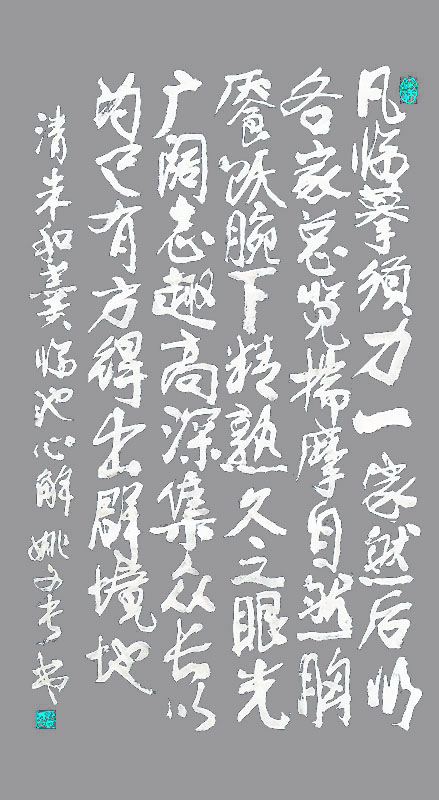 凡临摹须力一家然后以
各家总览揣摩自然胸
餍跃腕下精熟久之眼光
广阔志趣高深集众长以
为己有方得出群境地
清朱和羹临池心解姚文长书